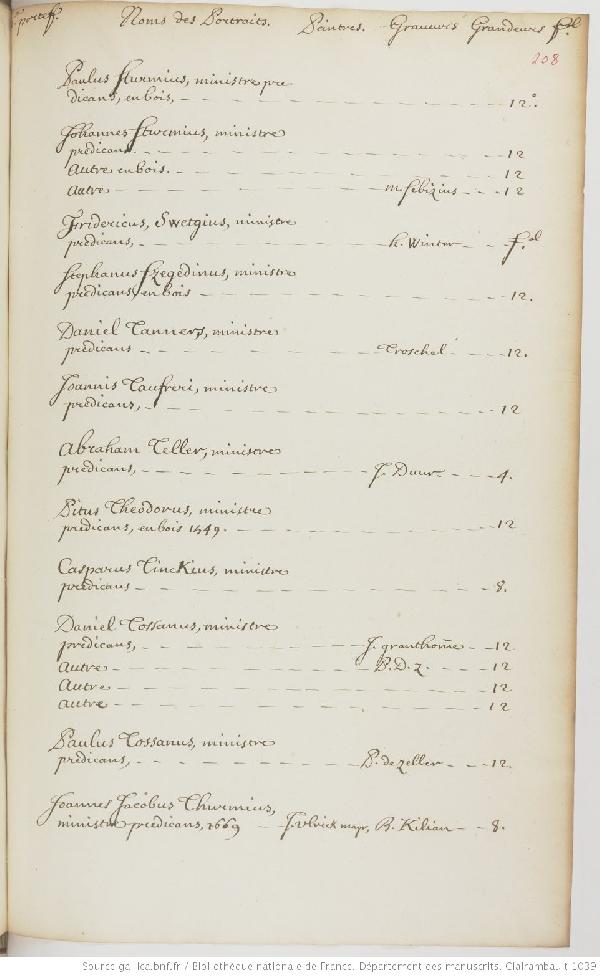 portef. Noms des Portraits. Peintres. Graueurs Grandeurs fol
208
Paulus Sturmius, ministre pre
dicans, en bois, 12°.
Johannes Sturmius, ministre
predicans. 12
Autre en bois. 12
Autre m. sebizius 12
Fridericus, Swetgius, ministre
predicans, h. Winter fol
Stephanus Szegedinus, ministre
predicans, en bois 12.
Daniel Tanners, ministre
predicans Troschel 12.
Joannis Taufreri, ministre
predicans, 12
Abraham Teller, ministre
predicans, J. Duur 4.
Vitus Theodorus, ministre
predicans, en bois 1549. 12
Casparus TincKius, ministre
predicans 8.
Daniel Tossanus, ministre
predicans, J. granthome 12
Autre P.D.z. 12
Autre 12
autre 12
Paulus Tossanus, ministre
predicans, P. de zeller 12.
Joannes Jacobus Thurmius,
ministre predicans, 1669 J. Ulrick mayr, B. Kilian 8.
Source gallica.bnf.fr / Bibliothèque nationale de France. Département des manuscrits. Clairambault 1039